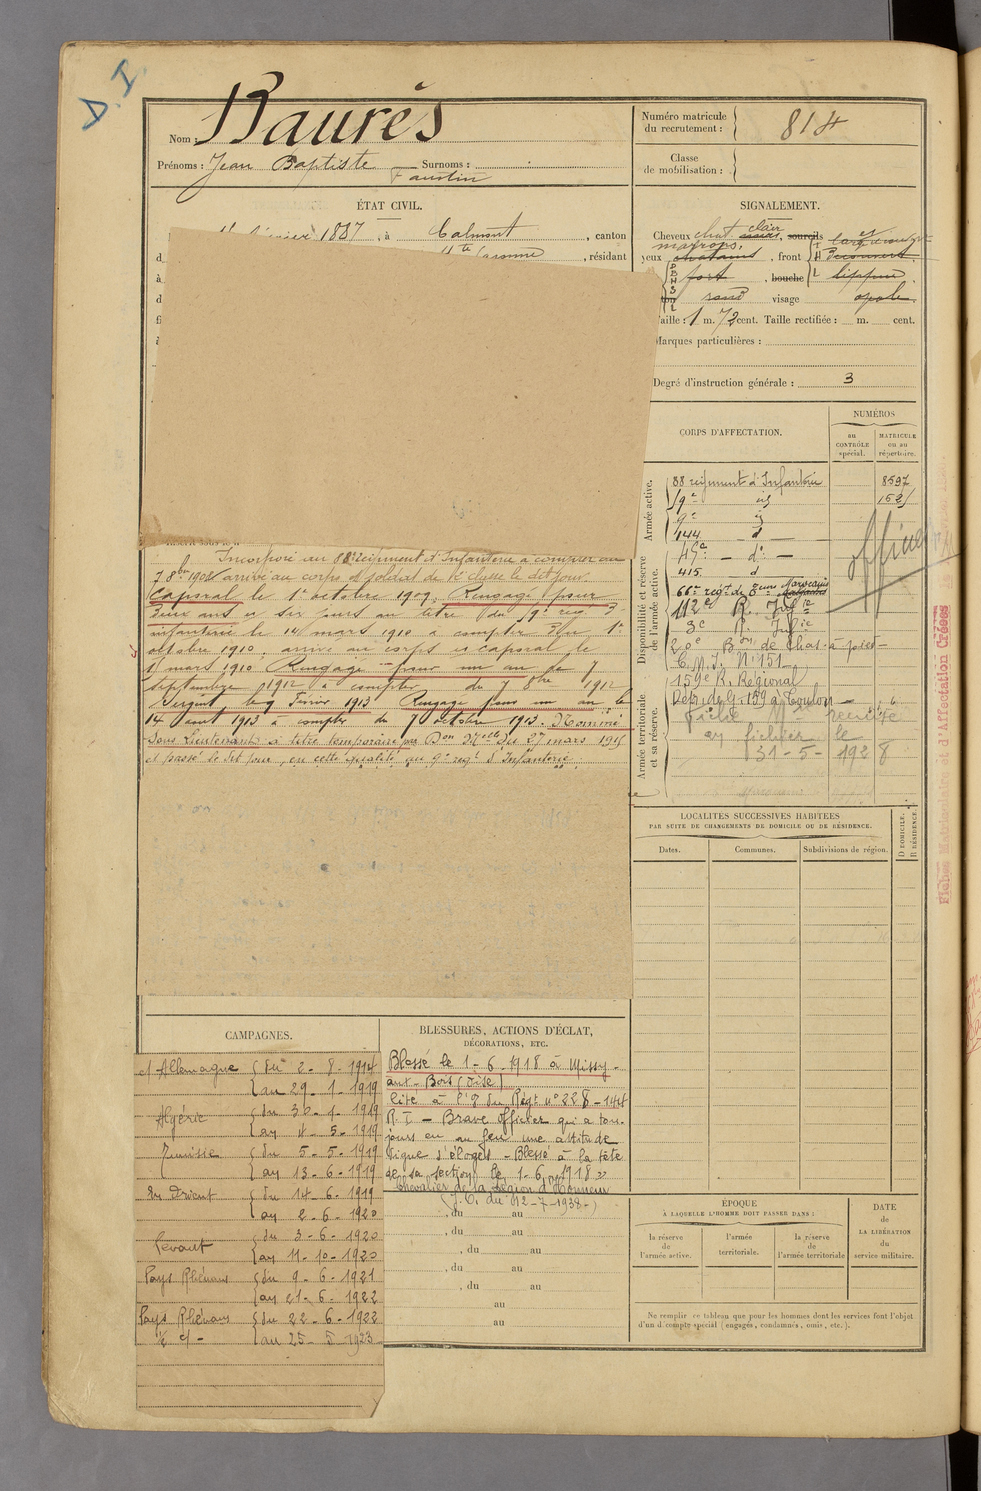 D. I.
Nom : Baurès
Prénoms : Jean Baptiste Surnoms :
Faustin
Numéro matricule
du recrutement : 814
Classe
de mobilisation :
ÉTAT CIVIL.
février 1887, à Calmont, canton
Hte Garonne, résidant
SIGNALEMENT.
Cheveux chat. clair, sourcils
marrons,
yeux chatains, front découvert
fort, bouche lippue
rond visage ovale
Taille : 1 m. 72 cent. Taille rectifiée : m. cent.
Marques particulières :
Degré d'instruction générale : 3
CORPS D'AFFECTATION.
NUMÉROS
au
CONTRÔLE
spécial.
MATRICULE
ou au
répertoire.
Armée active.
88 régiment d'Infanterie 8597
9e id
9e id
144 d
Disponibilité et réserve
de l'armée active.
49e - do -
415 d
66e régt de Marocains
112e R. Infie
3e R. Infie
20e Bon de Chas. à pied
C. M. I. No 151
159e R. Régional
Armée territoriale
et sa réserve.
Dépôt de G. 159 à Toulon
Fiche
au fichier le
31-5-1928
officier
Fiches Matriculaire et d'Affectation Créées
Incorporé au 88e régiment d'Infanterie à compter du
7 8bre 1908 arrivé au corps et soldat de 2e classe le dit jour.
Caporal le 1er octobre 1909. Rengagé pour
deux ans et six jours au titre du 9e régt
infanterie le 14 mars 1910 à compter du 1er
octobre 1910, arrivé au corps et caporal le
mars 1910 Rengagé pour un an le 7
septembre 1912 à compter du 7 8bre 1912
Sergent le 9 février 1913 Rengagé pour un an le
14 août 1913 à compter du 7 octobre 1913. Nommé
Sous Lieutenant à titre temporaire par Don Mlle du 27 mars 1915
et passé le dit jour, en cette qualité au 9e régt d'Infanterie
LOCALITÉS SUCCESSIVES HABITÉES
PAR SUITE DE CHANGEMENTS DE DOMICILE OU DE RÉSIDENCE.
Dates.
Communes.
Subdivisions de région.
D DOMICILE.
R RÉSIDENCE.
CAMPAGNES.
cl Allemagne du 2-8-1914
au 29-1-1919
Algérie du 30-1-1919
au 4-5-1919
Tunisie du 5-5-1919
au 13-6-1919
En Orient du 14-6-1919
au 2-6-1920
Levant du 3-6-1920
au 11-10-1920
Pays Rhénans du 9-6-1921
au 21-6-1922
Pays Rhénans du 22-6-1922
au 25-
BLESSURES, ACTIONS D'ÉCLAT,
DÉCORATIONS, ETC.
Blessé le 1-6-1918 à Missy-
aux-Bois (Oise)
Cité à l'O du Régt no 228 - 144
R. I - Brave officier qui a tou-
jours eu au feu une attitude
digne d'éloges - Blessé à la tête
de sa section le 1-6-1918 »
Chevalier de la Légion d'Honneur
(J. O. du 12-7-1938)
, du au
, du au
, du au
, du au
, du au
au
au
ÉPOQUE
À LAQUELLE L'HOMME DOIT PASSER DANS :
la réserve
de
l'armée active.
l'armée
territoriale.
la réserve
de
l'armée territoriale
DATE
de
LA LIBÉRATION
du
service militaire.
Ne remplir ce tableau que pour les hommes dont les services font l'objet
d'un décompte spécial (engagés, condamnés, omis, etc.).